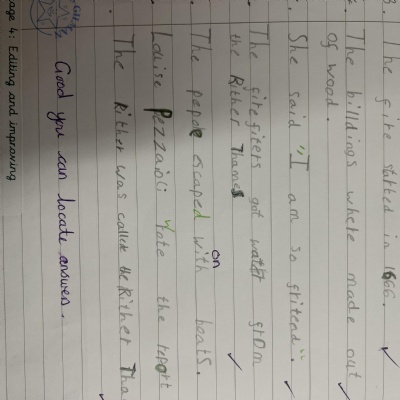 3. The fire started in 1666.
The billdings where made out
of wood.
She said "I am so fritend".
The firefiters got water from
the Rither Thames
The pepole escaped with on boats.
Louise Pezzaioli Wrote the report
The Rither was called the Rither Tha
Good you can locate answers.
age 4: Editing and improving